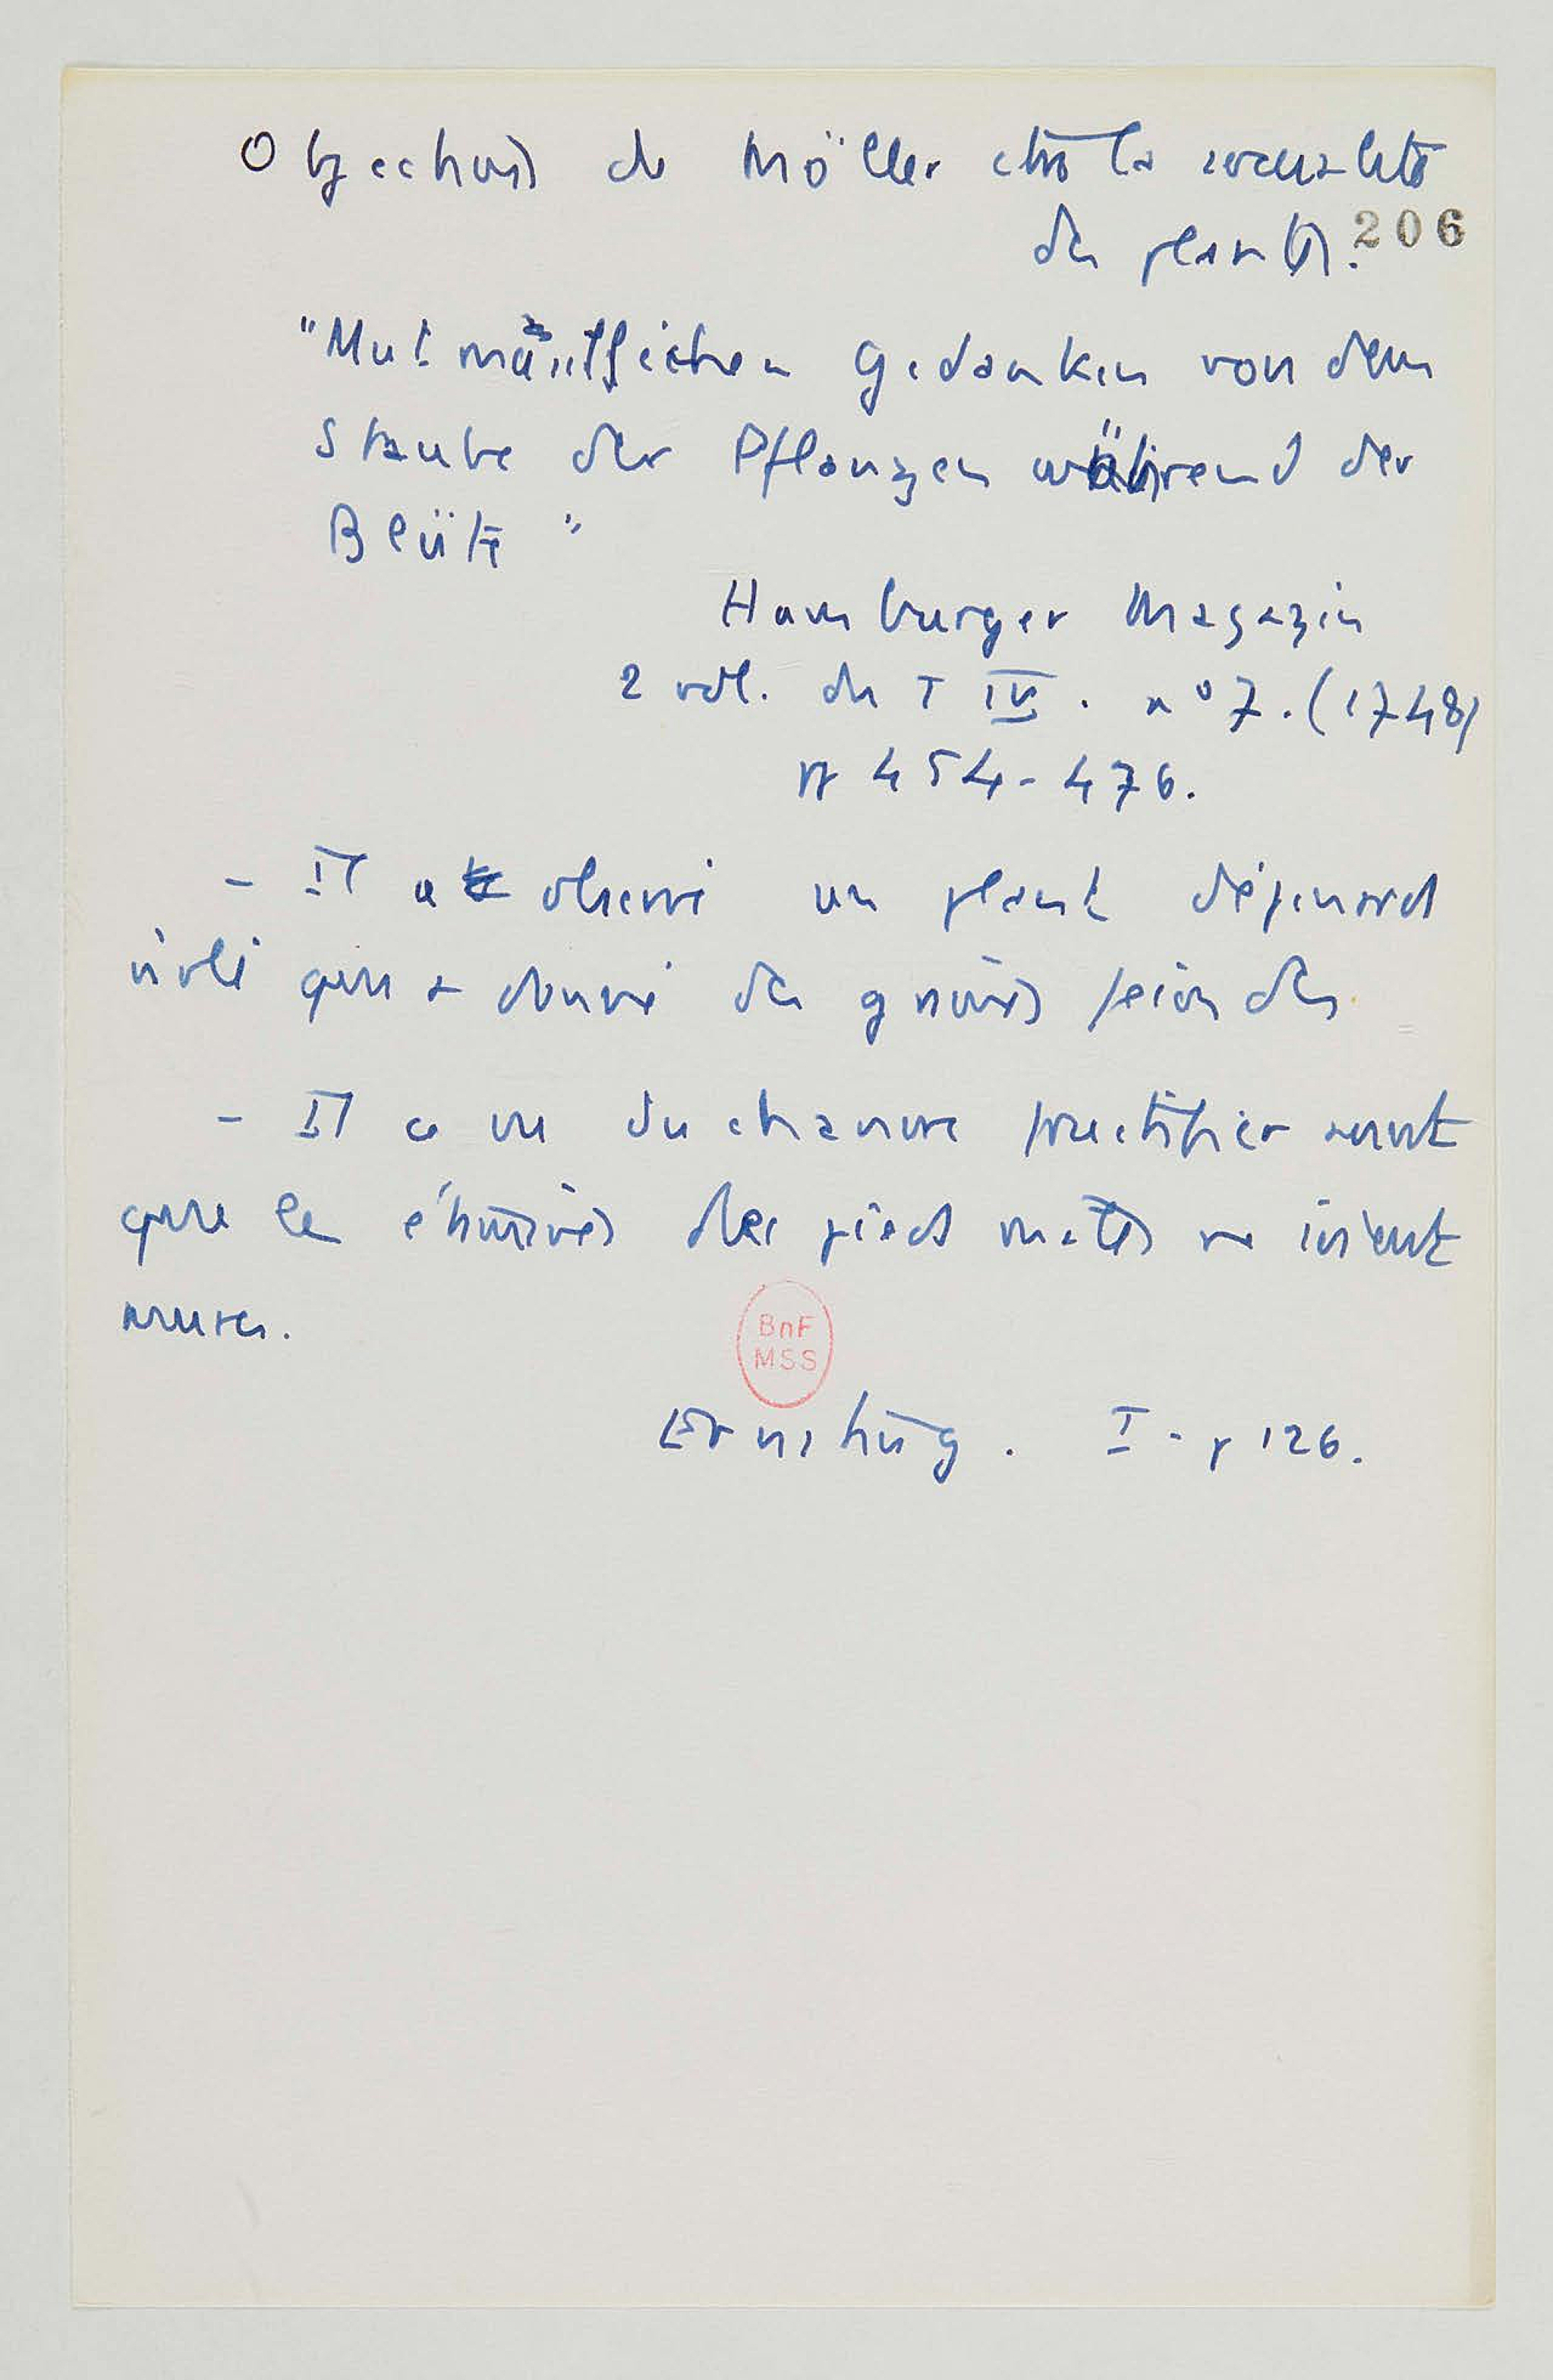 Objections de Möller ctre la sexualité
des plantes.
206
"Mutmässlichen Gedanken von dem
Staube der Pflanzen während der
Blüte"
Hamburger Magazin
2 vol. du T IV. n° 7. (1748)
pp 454-476.
- Il a observé un plant d'épinard
isolé qui a donné des graines fécondes.
- Il a vu du chanvre fructifier avant
que les étamines des pieds mâles ne soient
mures.
BnF
MSS
Ernsting. I - p 126.